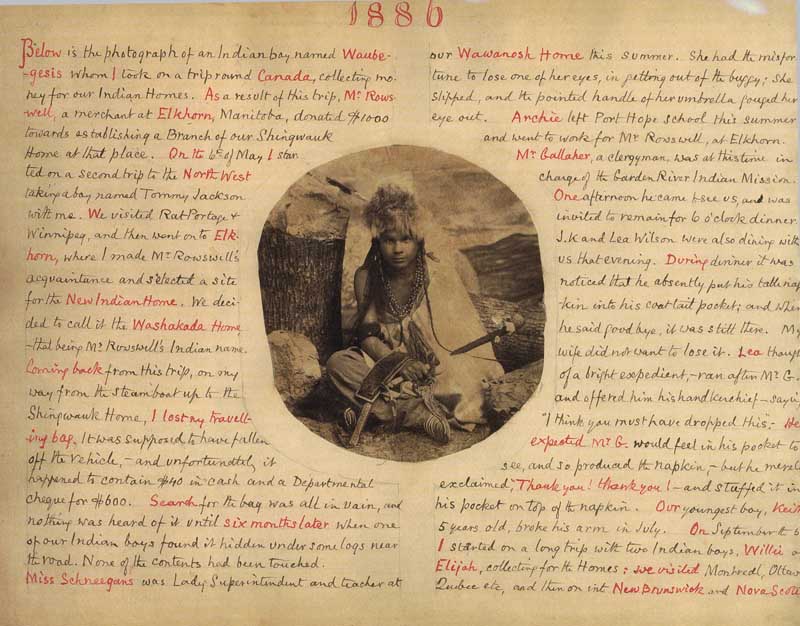 1886
Below is the photograph of an Indian boy named Waube-
-gesis whom I took on a trip round Canada, collecting mo-
ney for our Indian Homes. As a result of this trip, Mr Rows-
well, a merchant at Elkhorn, Manitoba, donated $1000
towards establishing a Branch of our Shingwauk
Home at that place. On the 6th of May I star
ted on a second trip to the North West
taking a boy named Tommy Jackson
with me. We visited Rat Portage &
Winnipeg, and then went on to Elk-
horn, where I made Mr Rowswell's
acquaintance and selected a site
for the New Indian Home. We deci-
ded to call it the Washakada Home
-that being Mr Rowswell's Indian name.
Coming back from this trip, on my
way from the steamboat up to the
Shingwauk Home, I lost my travell-
ing bag. It was supposed to have fallen
off the vehicle, - and unfortunately it
happened to contain $40 in cash and a Departmental
cheque for $600. Search for the bag was all in vain, and
nothing was heard of it until six months later when one
of our Indian boys found it hidden under some logs near
the road. None of the contents had been touched.
Miss Schneegans was Lady Superintendent and teacher at
our Wawanosh Home this summer. She had the misfor-
tune to lose one of her eyes, in getting out of the buggy; she
slipped, and the pointed handle of her umbrella gouged her
eye out. Archie left Port Hope school this summer
and went to work for Mr Rowswell, at Elkhorn.
Mr Gallaher, a clergyman, was at this time in
charge of the Garden River Indian Mission.
One afternoon he came to see us, and was
invited to remain for 6 o'clock dinner.
J.K and Lea Wilson were also dining with
us that evening. During dinner it was
noticed that he absently put his table nap
-kin into his coat tail pocket; and when
he said good bye, it was still there. My
wife did not want to lose it. Lea though
of a bright expedient, - ran after Mr G.
and offered him his handkerchief - sayin
"I think you must have dropped this". He
expected Mr G. would feel in his pocket to
see, and so produced the napkin, - but he merel
exclaimed, "Thank you! thank you! - and stuffed it in
his pocket on top of the napkin. Our youngest boy, Keith
5 years old, broke his arm in July. On September the 6
I started on a long trip with two Indian boys, Willie a
Elijah, collecting for the Homes: we visited Montreal, Ottaw
Quebec etc, and then on int New Brunswick and Nova Scoti